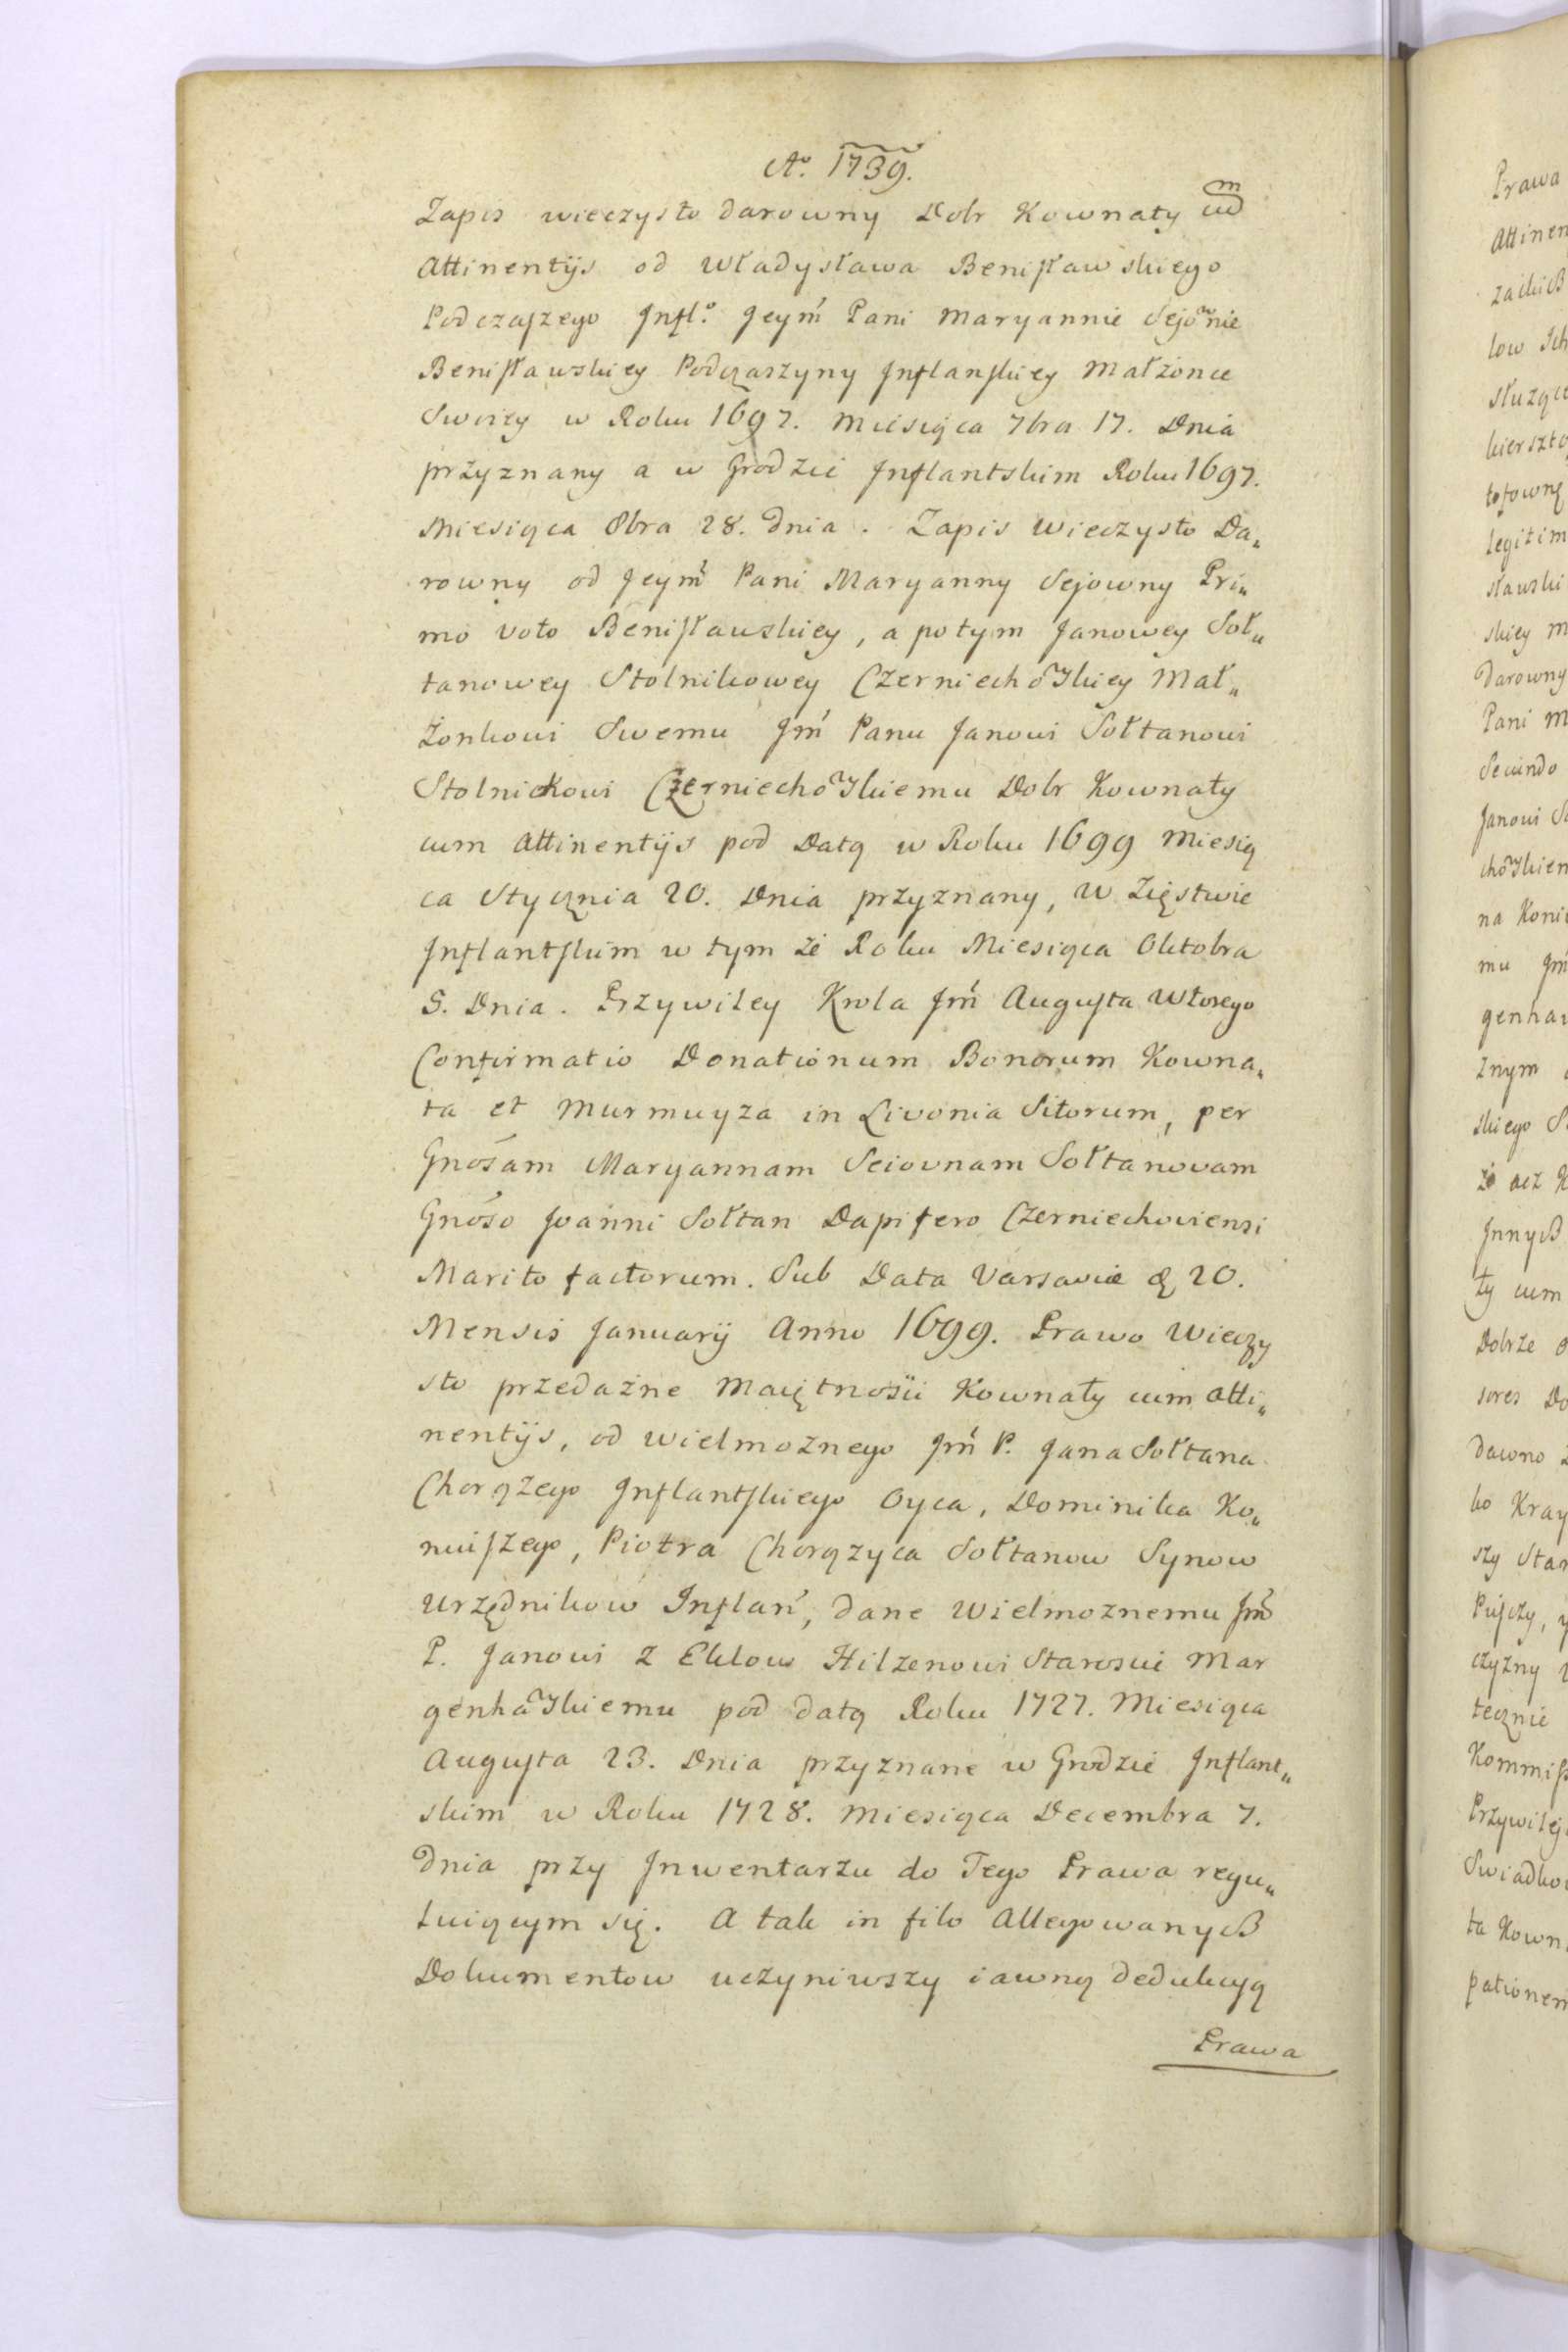 Ao. 1739.
Zapis wieczysto darowny Dobr Kownaty cum
Attinentijs od Władysława Benisławskiego
Podczaszego Infl.o Jeym Pani Maryannie Sejownie
Benisławskiey Podczaszyny Inflanskiey Małżonce
Swoiey w Roku 1697. Miesiąca 7bra 17. Dnia
przyznany a w Grodzie Inflantskim Roku 1697.
Miesiąca 8bra 28. dnia. Zapis wieczysto Da„
rowny od Jeym Pani Maryanny Sejowny Pri„
mo voto Benisławskiey, a potym Janowey Soł„
tanowey Stolnikowey Czerniechowskiey Mał„
żonkowi Swemu Jm Panu Janowi Sołtanowi
Stolnickowi Czerniechowskiemu Dobr Kownaty
cum Attinentijs pod Datą w Roku 1699 Miesią
ca Stycznia 20. Dnia przyznany, w Zięstwie
Inflantskim w tym że Roku Miesiąca Oktobra
5. Dnia. Przywiley Krola Jm Augusta Wtorego
Confirmatio Donationum Bonorum Kowna„
ta et Murmuyza in Livonia Sitorum, per
Gnosam Maryannam Seiovnam Sołtanovam
Gnoso Joanni Sołtan Dapifero Czerniechoviensi
Marito factorum. Sub Data Varsavie d 20.
Mensis Januarij Anno 1699. Prawo Wieczy
sto przedażne Maiętnosci Kownaty cum Atti„
nentijs, od wielmoznego Jm P. Jana Sołtana
Chorążego Inflantskiego Oyca, Dominika Ko„
niuszego, Piotra Chorązyca Sołtanow Synow
Urzędnikow Inflan, dane Wielmoznemu Jm
P. Janowi z Eklow Hilzenowi Staroscie Mar
genhawskiemu pod datą Roku 1727. Miesiąca
Augusta 23. Dnia przyznane w Grodzie Inflant„
skim w Roku 1728. Miesiąca Decembra 7.
Dnia przy Inwentarzu do Tego Prawa regu„
luiącym się. A tak in filo Allegowanych
Dokumentow uczyniwszy iawną dedukcyą
Prawa
Prawa
Attinen
low Ich
legitim
skiey M
Darowny
Pani M
Secundo
Janowi So
na Koni
mu Jm
znym
skiego S
Innych
ty cum
Dobrze
sores Do
dawno
ko Kray
szy Star
czyzny
tecznie
Kommis
Przywilej
Swiadko
ta Kown
pationem